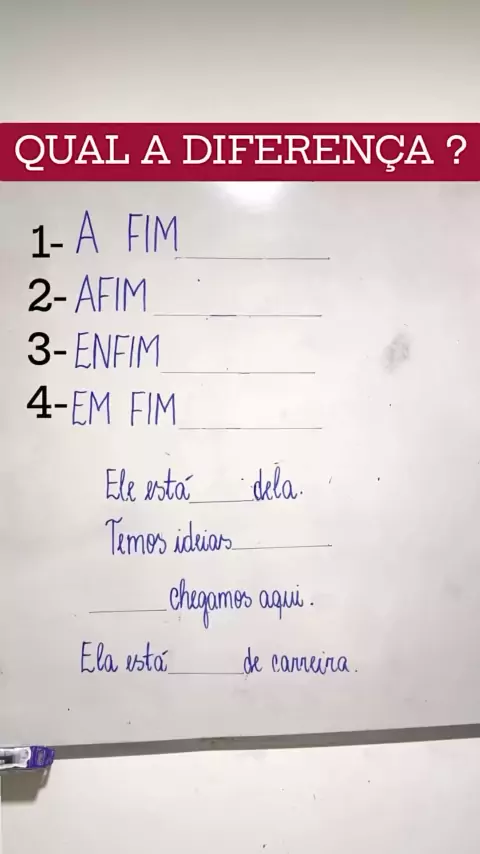 QUAL A DIFERENÇA ?
1- A FIM
2- AFIM
3- ENFIM
4- EM FIM
Ele está ______ dela.
Temos ideias ______
______ chegamos aqui.
Ela está ______ de carreira.